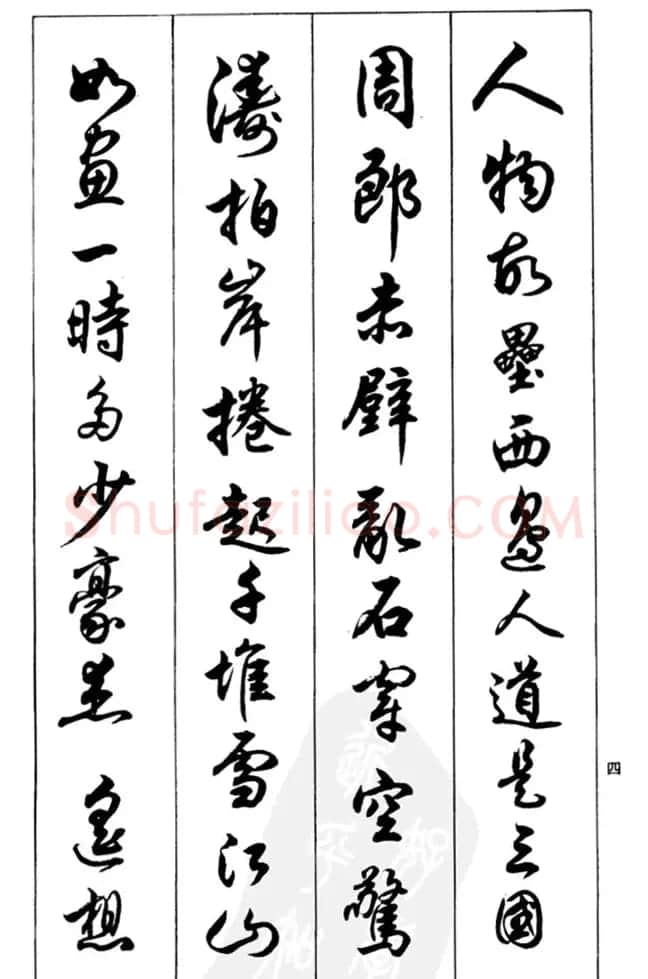 人物故壘西邊人道是三國
周郎赤壁亂石穿空驚
濤拍岸捲起千堆雪江山
如畫一時多少豪杰遙想
四
Shufaziliao.COM